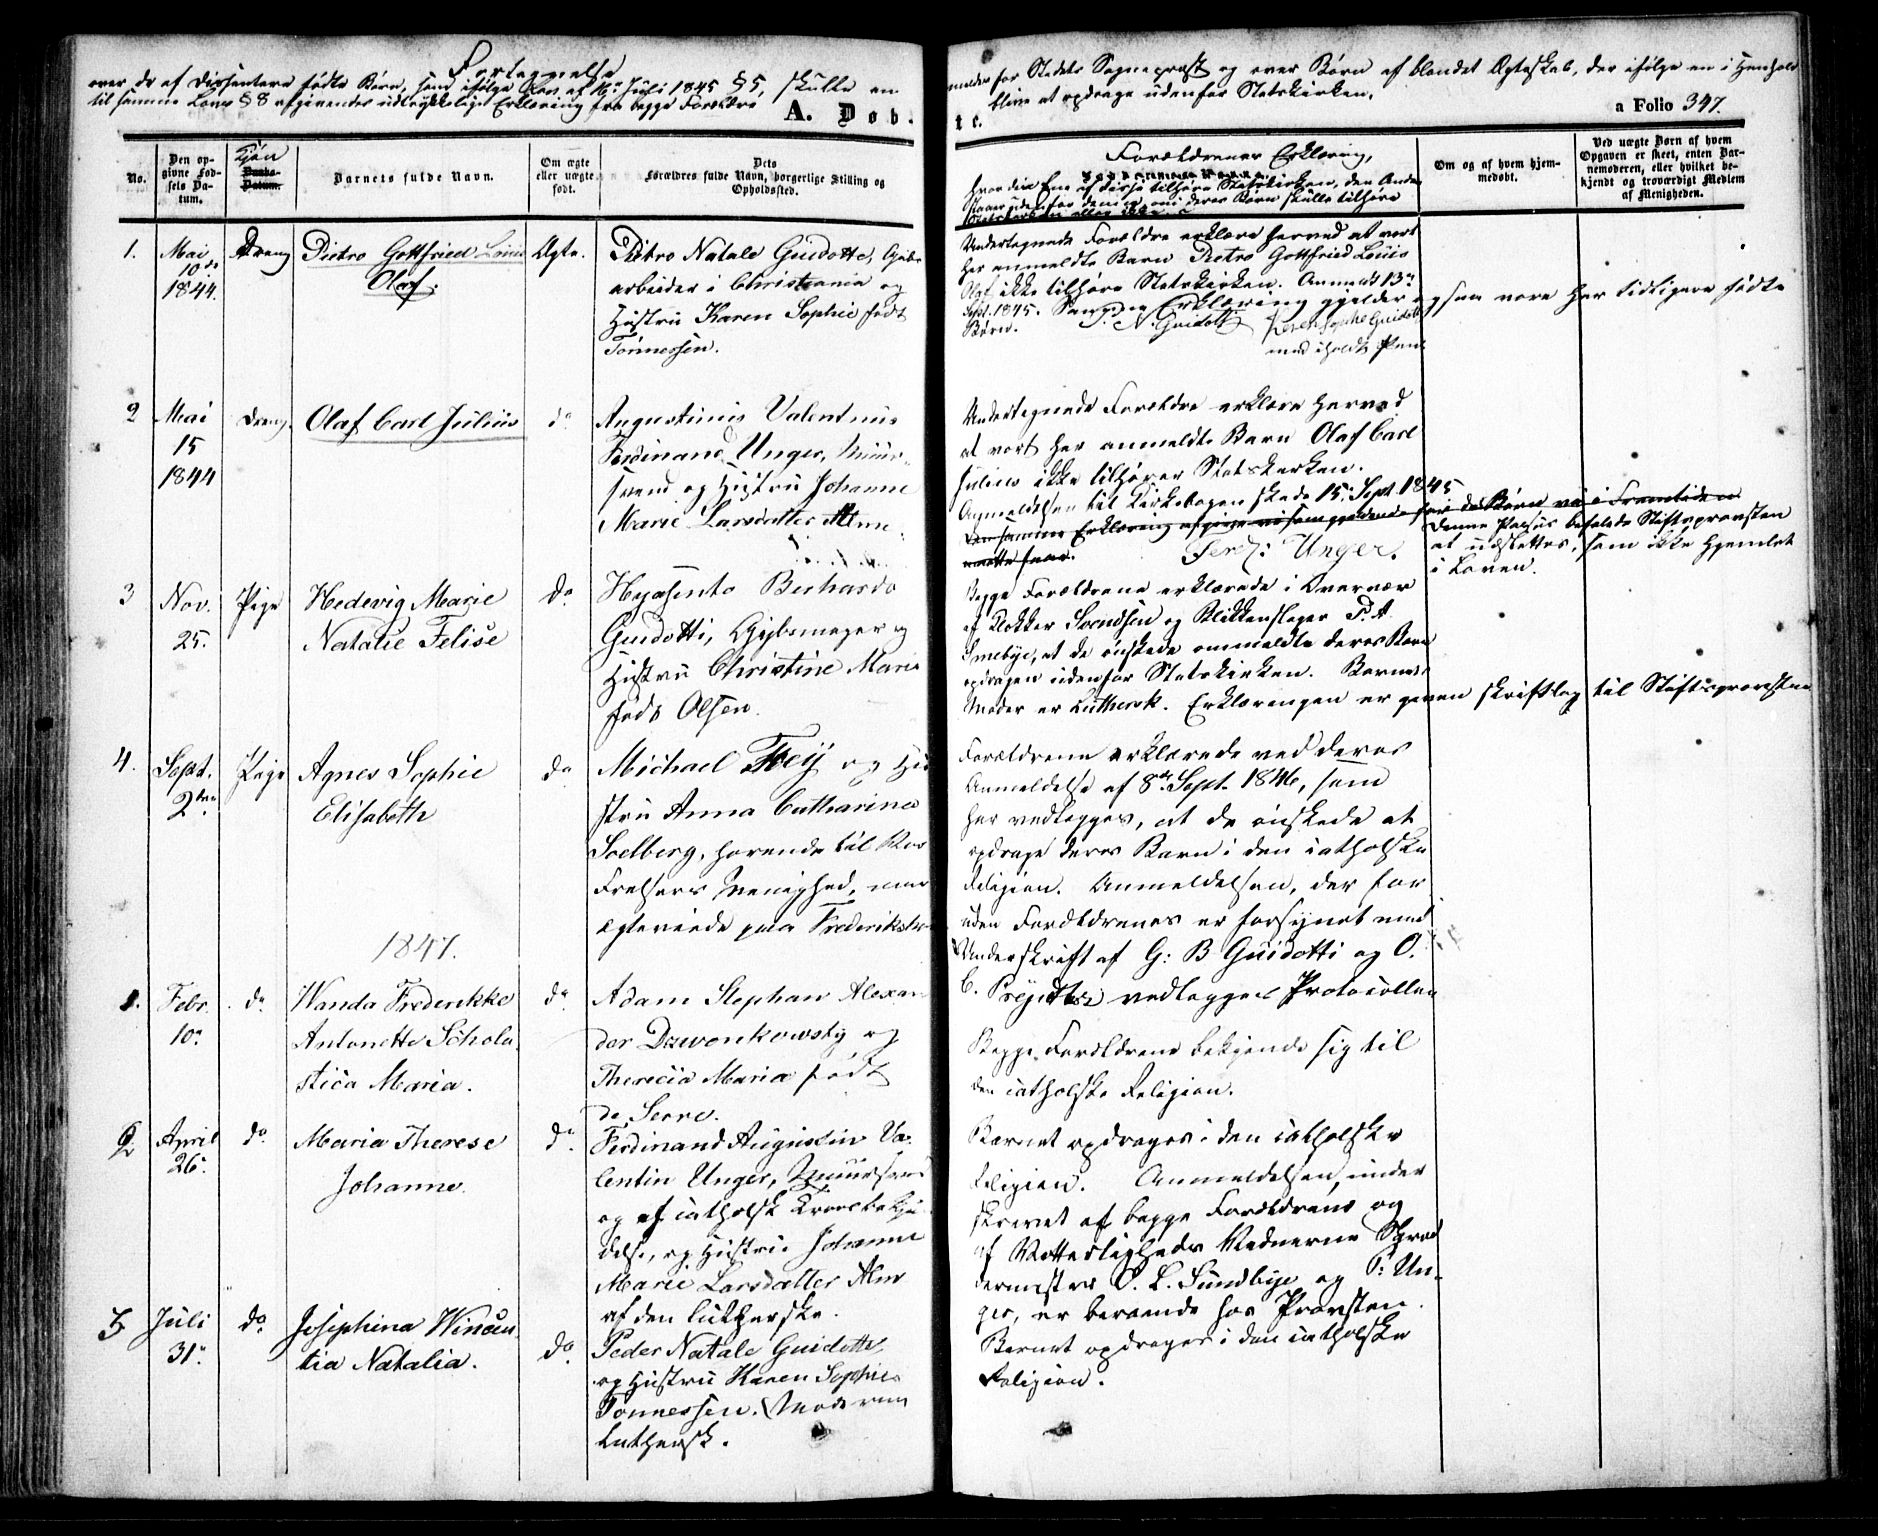 Fortegnelse
over de af Dissentere fødte Børn, som ifølge Lov af 16 Juli 1845 § 5, skulle an
til samme Lovs § 8 afgivende udtrykkelige Erklæring fra begge Forældre
A. Døb.
meldes for Stedets Sognepræst og over Børn af blandet Ægteskab, der ifølge en i Henhold
blive at opdrage udenfor Statskirken.
te.
a Folio 347.
No.
Den op-
givne Fød-
sels Da-
tum.
Kjøn
Daabs-
Datum.
Barnets fulde Navn.
Om ægte
eller uægte
født.
Dets
Forældres fulde Navn, borgerlige Stilling og
Opholdssted.
Forældrenes Erklæring,
hvordin Ene af disse tilhører Statskirken, den Anden
staaer udenfor denne, om deres Børn skulle tilhøre
Statskirken eller ikke.
Om og af hvem hjem-
medøbt.
Ved uægte Børn af hvem
Opgaven er skeet, enten Bar-
nemoderen, eller hvilket be-
kjendt og troværdigt Medlem
af Menigheden.
1.
Mai
10de
1844.
Dreng
Pietro Gottfried Louis
Olaf.
Ægte.
Pietro Natale Guidotti, Gibs
arbeider i Christiania og
Hustru Karen Sophie født
Tønnessen.
Undertegnede Forældre erklære herved at vort
her anmeldte Barn Pietro Gottfried Louis
Olaf ikke tilhøre Statskirken. Anmeldt 13de
Sept. 1845. Samme Erklæring gjelder ogsaa vore her tidligere fødte
Børn. P. N. Guidotti Karen Sophie Guidotti
med iholdt Pen
2
Mai
15
1844
Dreng.
Olaf Carl Julius
do
Augustinus Valentinus
Ferdinand Unger, Muur-
svend og Hustru Johanne
Marie Larsdatter Alme
Undertegnede Forældre erklære herved
at vort her anmeldte Barn Olaf Carl
Julius ikke tilhører Statskirken.
Anmeldelsen til Kirkebogen skede 15. Sept. 1845
Den samme Erklæring afgive vi som gjældende for de Børn vi i Fremtiden
maatte faae. Ferd: Unger.
Denne Passus befalede Stiftsprovsten
at udslettes, som ikke hjemlet
i Loven.
3
Nov.
25.
Pige
Hedevig Marie
Natalie Felise
do
Guidotti, Gibsmager og
Hustru Christine Marie
født Olsen.
Begge Forældrene erklærede i Overvær
af Klokker Svendsen og Blikkenslager P. A
Smebye, at de ønskede anmeldte deres Barn
opdragen udenfor Statskirken. Barnets
Moder er Luthersk. Erklæringen er given skriftlig til Stiftsprovsten
4.
Sept.
2den
Pige
Agnes Sophie
Elisabeth
do
Michael Feÿ og Hu
stru Anna Catharina
Soelberg, hørende til Vor
Frelsers Menighed, men
ægteviede paa Frederiksv
Forældrene erklærede ved deres
Anmeldelse af 8de Sept. 1846, som
her vedlægges, at de ønskede at
opdrage deres Barn i den catholske
Religion. Anmeldelsen, der for
uden Forældrenes er forsynet med
Underskrift af G: B Guidotti og O.
C. vedlægges Protocollen
1847.
1.
Febr.
10.
do
Wanda Frederikke
Antonette Schola-
stica Maria.
do
Adam Stephan Alexan
der Dzwonkowsky og
Therecia Maria født
de Serre.
Begge Forældrene bekjende sig til
den catholske Religion.
2
April
26.
do
Maria Therese
Johanne.
do
Ferdinand Augustin Va-
lentin Unger, Muursvend
og af catholsk Troesbekjen
delse, og Hustru Johanne
Marie Larsdatter Alm
af den lutherske.
Barnet opdrages i den catholske
Religion. Anmeldelsen, under
skrevet af begge Forældrene og
af Vitterligheds Vidnerne Skræd
dermester O. L. Sundbye og P: Un-
ger, er beroende hos Provsten.
3
Juli
31.
do
Josephina Wincen
tia Natalia.
do
Peder Natale Guidotti
og Hustru Karen Sophie
Tønnessen. Moderen
Luthersk.
Barnet opdrages i den catholske
Religion.